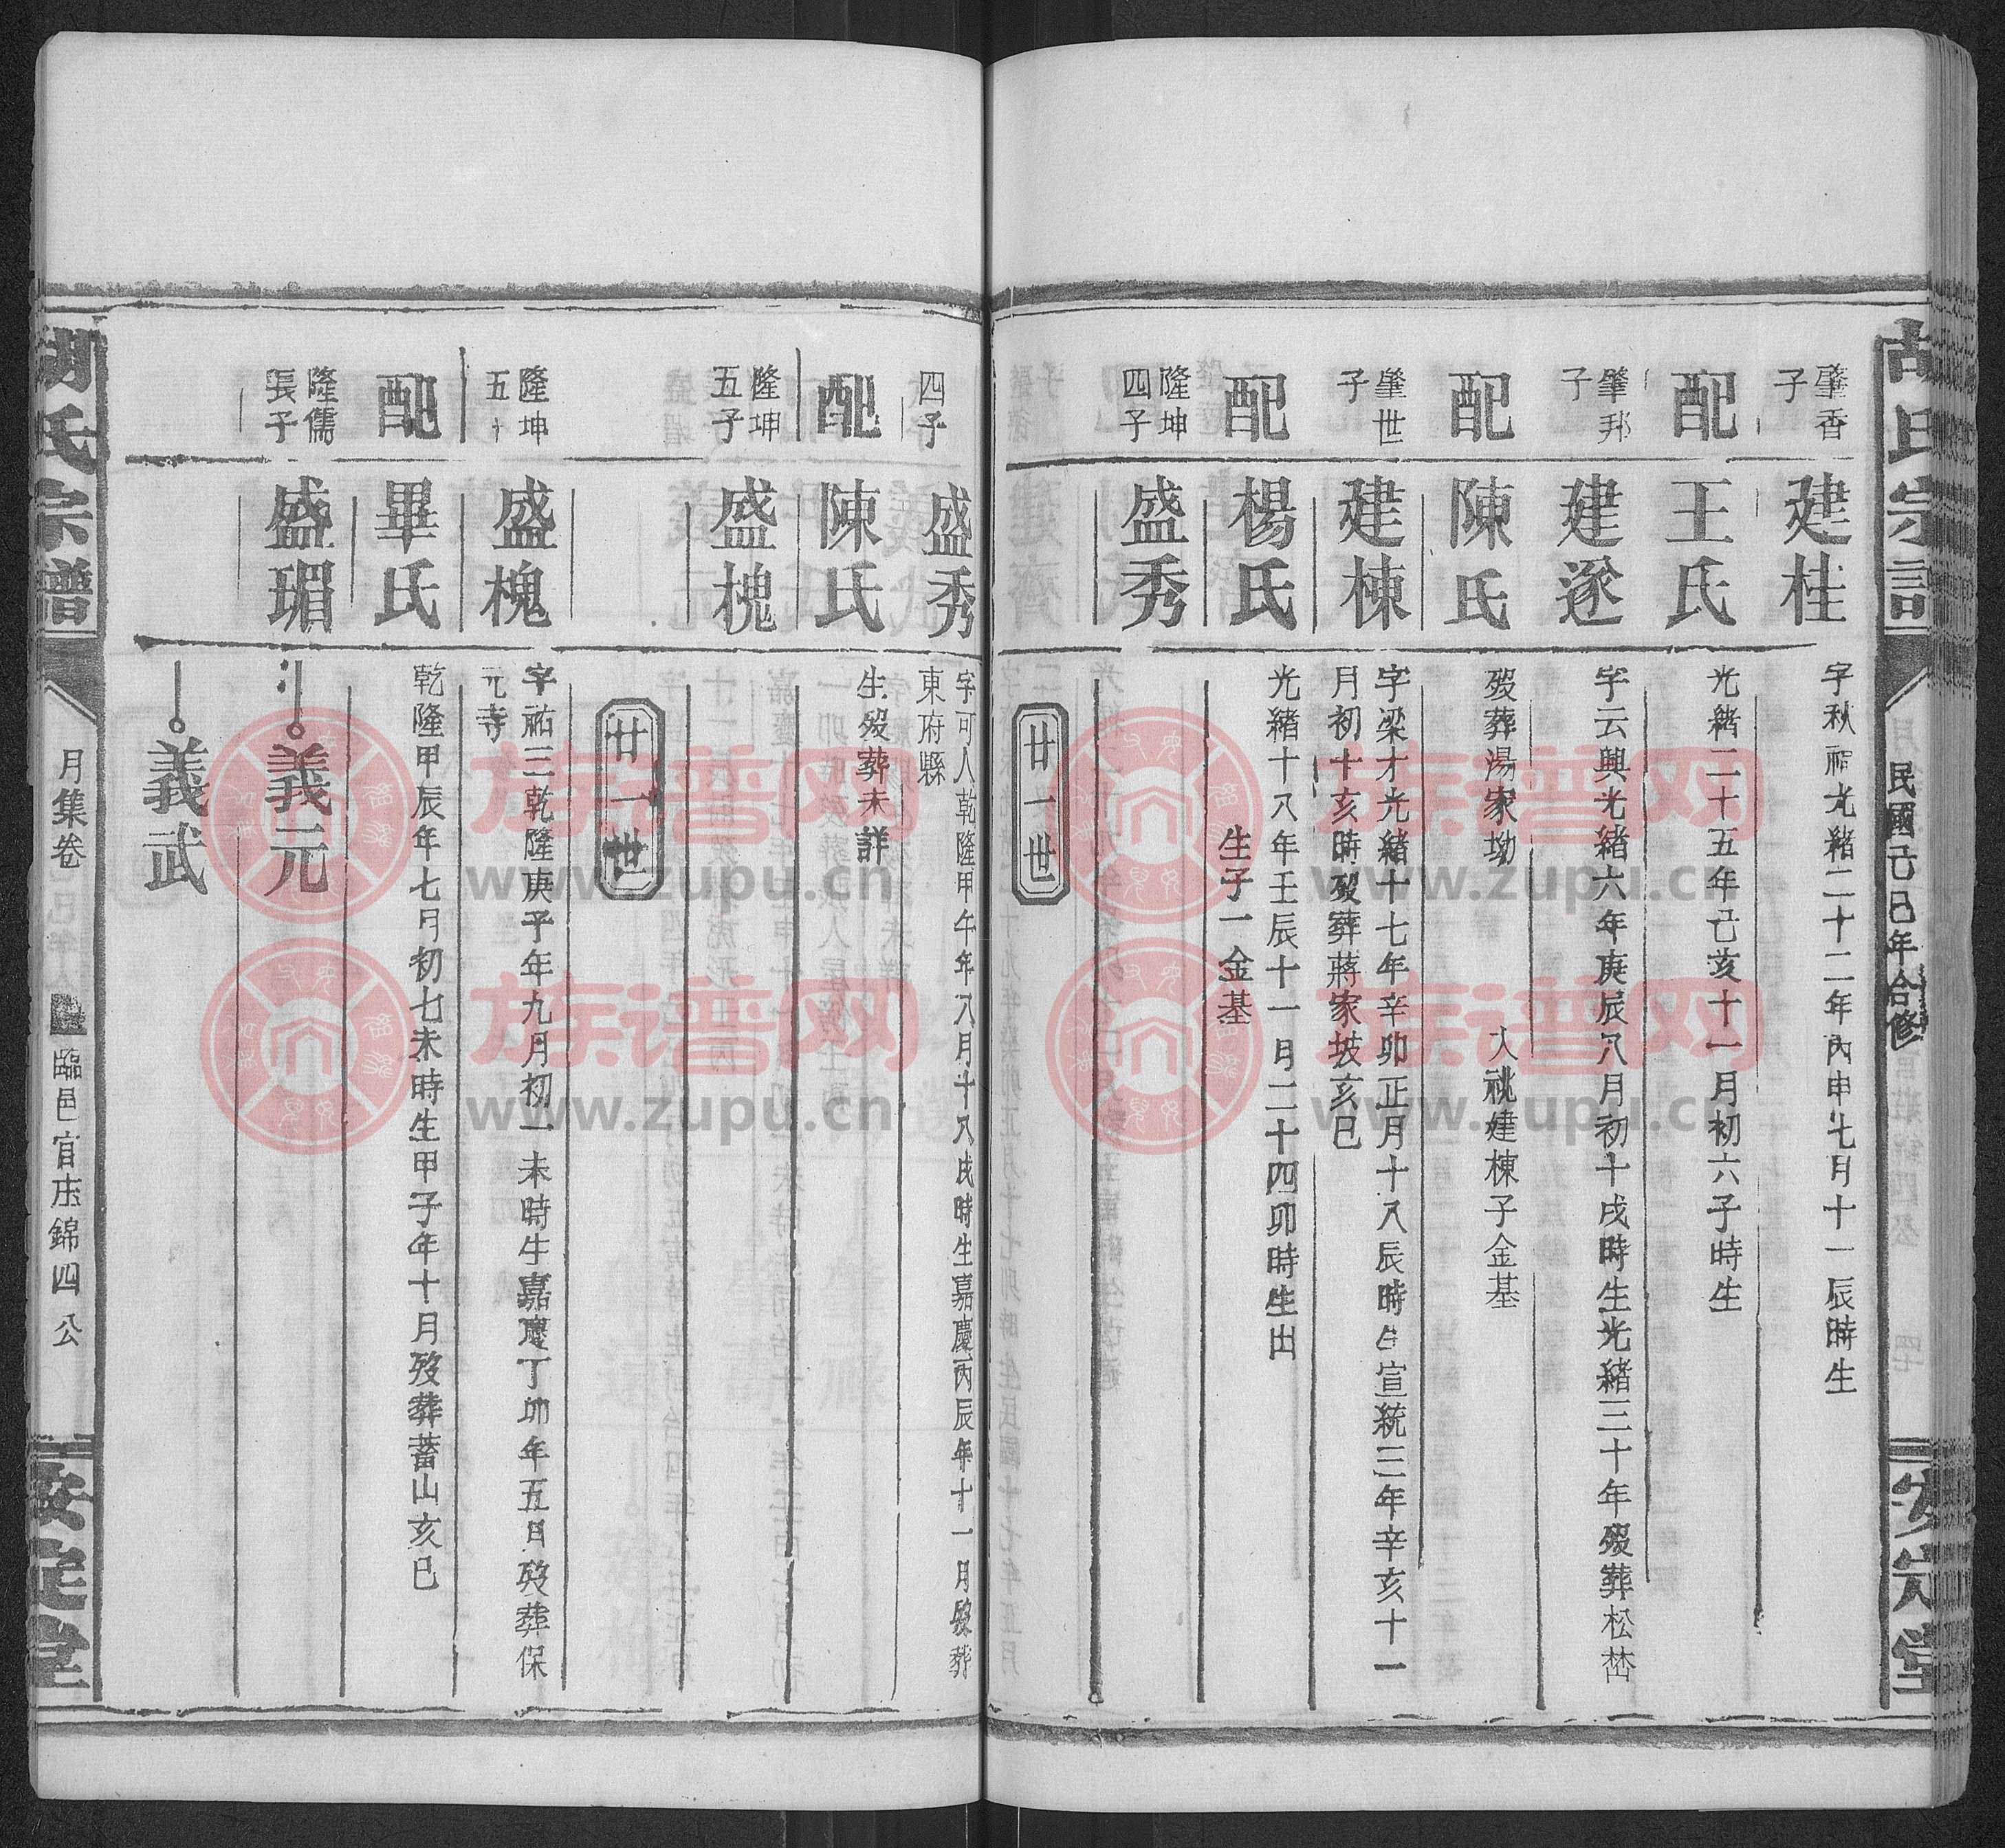 胡氏宗譜
民國己巳年合修
安定堂
肇香子
建桂
字秋祠光緒二十二年丙申七月十一辰時生
配
王氏
光緒二十五年己亥十一月初六子時生
肇邦子
建遂
字云興光緒六年庚辰八月初十戌時生光緒三十年歿葬松𡶶
配
陳氏
歿葬湯家坳
入祧建棟子金基
肇世子
建棟
字梁才光緒十七年辛卯正月十八辰時生宣統三年辛亥十一
月初十亥時歿葬蔣家坡亥巳
配
楊氏
光緒十八年壬辰十一月二十四卯時生出
生子一金基
隆坤四子
盛秀
廿一世
四子
盛秀
字可人乾隆甲午年八月十八戌時生嘉慶丙辰年十一月歿葬
東府縣
配
陳氏
生歿葬未詳
隆坤五子
盛槐
廿一世
隆坤五
盛槐
字祐三乾隆庚子年九月初一未時生嘉慶丁卯年五月歿葬保
元寺
配
畢氏
乾隆甲辰年七月初七未時生甲子年十月歿葬蓄山亥巳
隆儒長子
盛瑂
義元
義武
胡氏宗譜
月集卷
臨邑官庄錦四公
安定堂
族谱网
www.zupu.cn
族谱网
www.zupu.cn
族谱网
www.zupu.cn
族谱网
www.zupu.cn